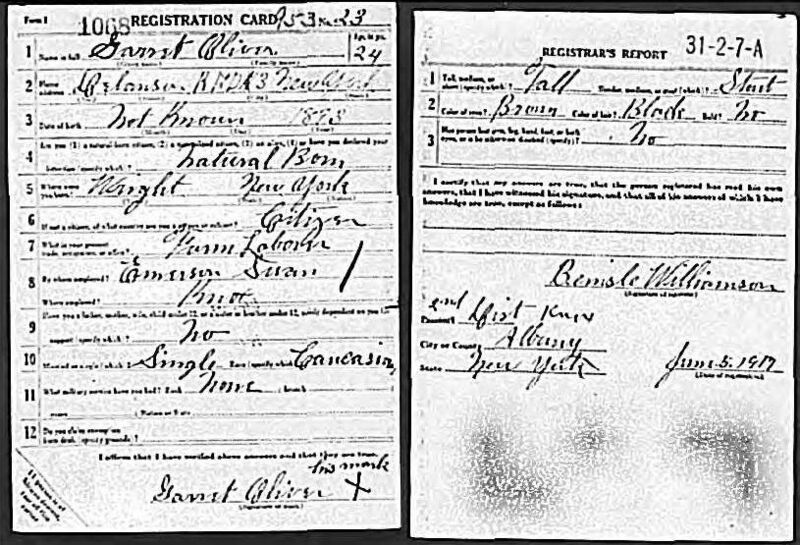 Form 1 1068 REGISTRATION CARD 953 No. 23
1 Name in full Garrit Oliver Age, in yrs. 24
(Given name) (Family name)
2 Home address Delanson R.F.D. #3 New York
(No.) (Street) (City) (State)
3 Date of birth Not Known 1893
(Month) (Day) (Year)
4 Are you (1) a natural-born citizen, (2) a naturalized citizen, (3) an alien, (4) or have you declared your
intention (specify which)? Natural Born
5 Where were you born? Wright New York
(Town) (State) (Nation)
6 If not a citizen, of what country are you a citizen or subject? Citizen
7 What is your present trade, occupation, or office? Farm Laborer
8 By whom employed? Emerson Swan
Where employed? Knox
9 Have you a father, mother, wife, child under 12, or a sister or brother under 12, solely dependent on you for
support (specify which)? No
10 Married or single (which)? Single Race (specify which)? Caucasian
11 What military service have you had? Rank None ; branch
; years ; Nation or State
12 Do you claim exemption from draft (specify grounds)?
I affirm that I have verified above answers and that they are true.
his mark
Garrit Oliver X
(Signature or mark)
If person is of African descent, tear off this corner
REGISTRAR'S REPORT 31-2-7-A
1 Tall, medium, or short (specify which)? Tall Slender, medium, or stout (which)? Stout
2 Color of eyes? Brown Color of hair? Black Bald? No
3 Has person lost arm, leg, hand, foot, or both eyes, or is he otherwise disabled (specify)? No
I certify that my answers are true, that the person registered has read his own
answers, that I have witnessed his signature, and that all of his answers of which I have
knowledge are true, except as follows:
Bemsle Williamson
(Signature of registrar)
Precinct 2nd Dist Knox
City or County Albany
State New York June 5, 1917
(Date of registration)